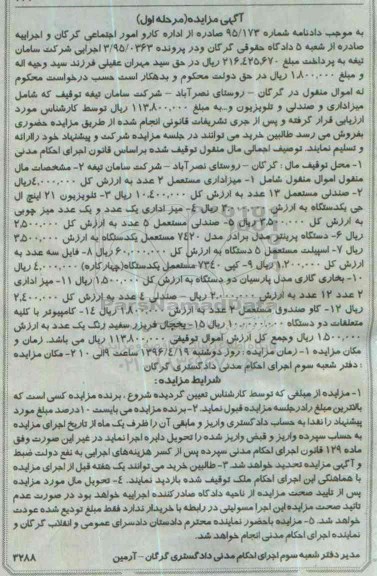 آگهی مزایده(مرحله اول)
به موجب دادنامه شماره ۹۵/۱۷۳ صادره از اداره کارو امور اجتماعی گرگان و اجراییه
صادره از شعبه ۵ دادگاه حقوقی گرگان ودر پرونده ۳/۹۵/۰۳۶۳ اجرایی شرکت سامان
تیغه به پرداخت مبلغ ۲۱۶.۴۲۵.۶۷۰ ریال در حق سید مهران عقیلی فرزند سید وجیه اله
و مبلغ ۱.۸۰۰.۰۰۰ ریال در حق دولت محکوم و بدهکار است حسب درخواست محکوم
له اموال منقول در گرگان – روستای نصرآباد – شرکت سامان تیغه توقیف که شامل
میزاداری و صندلی و تلویزیون و...به مبلغ ۱۱۳.۸۰۰.۰۰۰ ریال توسط کارشناس مورد
ارزیابی قرار گرفته و پس از جری تشریفات قانونی انجام شده از طریق مزایده حضوری
بفروش می رسد طالبین خرید می توانند در جلسه مزایده شرکت و پیشنهاد خود راارائه
و تسلیم نمایند. توصیف اجمالی مال منقول توقیف شده براساس قانون اجرای احکام مدنی
۱- محل توقیف مال : گرگان – روستای نصرآباد – شرکت سامان تیغه ۲- مشخصات مال
منقول اموال منقول شامل ۱- میزاداری مستعمل ۲ عدد به ارزش کل ۴.۰۰۰.۰۰۰ریال
۲- صندلی مستعمل ۱۳ عدد به ارزش کل ۱۰.۴۰۰.۰۰۰ ریال ۳- تلویزیون ۲۱ اینچ ال
جی یکدستگاه به ارزش ریال ۴- میز اداری یک عدد و یک عدد میز چوبی
به ارزش کل ۲.۵۰۰.۰۰۰ ریال ۵- صندلی مستعمل ۵ عدد به ارزش کل ۲.۵۰۰.۰۰۰
ریال ۶- دستگاه پرینتر مدل برادر مدل ۷۴۲۰ مستعمل یکدستگاه به ارزش ۳.۵۰۰.۰۰۰
ریال ۷- اسپیلت مستعمل ۵ دستگاه به ارزش کل ۶۰.۰۰۰.۰۰۰ ریال ۸- فایل سه عدد به
ارزش کل ۱.۲۰۰.۰۰۰ ریال ۹- کپی ۷۳۴۰ مستعمل یکدستگاه(چهارکاره) ۴.۰۰۰.۰۰۰ ریال
۱۰- بخاری گازی مدل پارسیان دو دستگاه به ارزش کل ۱.۵۰۰.۰۰۰ ریال ۱۱- میز اداری
۲ عدد ۱۲ عدد به ارزش ۲.۰۰۰.۰۰۰ ریال - صندلی ٤ عدد به ارزش کل ۲.۴۰۰.۰۰۰
ریال ۱۳- گاو صندوق مستعمل ۲ عدد به ارزش ۱.۸۰۰.۰۰۰ ریال ۱۴- کامپیوتر با کلیه
متعلقات دو دستگاه ۱۰.۰۰۰.۰۰۰ ریال ۱۵- یخچال فریزر سفید رنگ یک عدد به ارزش
۱.۵۰۰.۰۰۰ ریال وجمع کل ارزش آموال توقیفی ۱۱۳.۸۰۰.۰۰۰ ریال می باشد. زمان و
مکان مزایده ۱- زمان مزایده : روز دوشنبه ۱۳۹۶/۴/۱۹ ساعت ۹الی ۱۰ ۲- مکان مزایده
: دفتر شعبه سوم اجرای احکام مدنی دادگستری گرگان
شرایط مزایده :
۱- مزایده از مبلغی که توسط کارشناس تعیین گردیده شروع . برنده مزایده کسی است که
بالاترین مبلغ رادرجلسه مزایده قبول نماید. ۲- برنده مزایده می بایست ۱۰درصد مبلغ مورد
پیشنهاد را نقدا به حساب دادگستری واریز و مابقی آن را ظرف یک ماه از تاریخ اجرای مزایده
به حساب سپرده واریز و قبض واریز شده را تحویل دایره اجرا نماید در غیر این صورت وفق
ماده ۱۲۹ قانون اجرای احکام مدنی سپرده پس از کسر هزینه‌های اجرایی به نفع دولت ضبط
و آگهی مزایده تجدید خواهد شد. ۳- طالبین خرید می توانند یک هفته قبل از اجرای مزایده
با هماهنگی این اجرای احکام ملک توقیف شده بازدید نمایند. ۴- تحویل مال مورد مزایده
پس از تایید صحت مزایده از ناحیه دادگاه صادرکننده اجراییه خواهد بود در صورت عدم
تائید صحت مزایده این اجرا مسولیتی در رابطه با خریدار ندارد فقط مبلغ تودیع شده عودت
خواهد شد. ۵- مزایده باحضور نماینده محترم دادستان دادسرای عمومی و انقلاب گرگان و
نماینده اجرای احکام مدنی انجام خواهد شد.
مدیر دفتر شعبه سوم اجرای احکام مدنی دادگستری گرگان – آرمین
۳۲۸۸